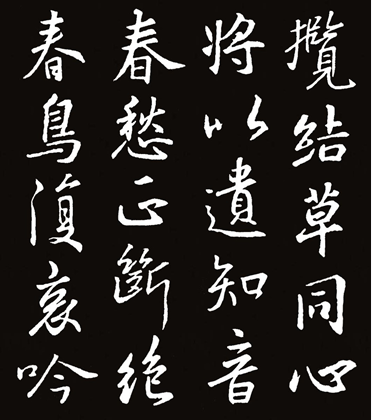 攬結草同心
將以遺知音
春愁正斷絕
春鳥復哀吟